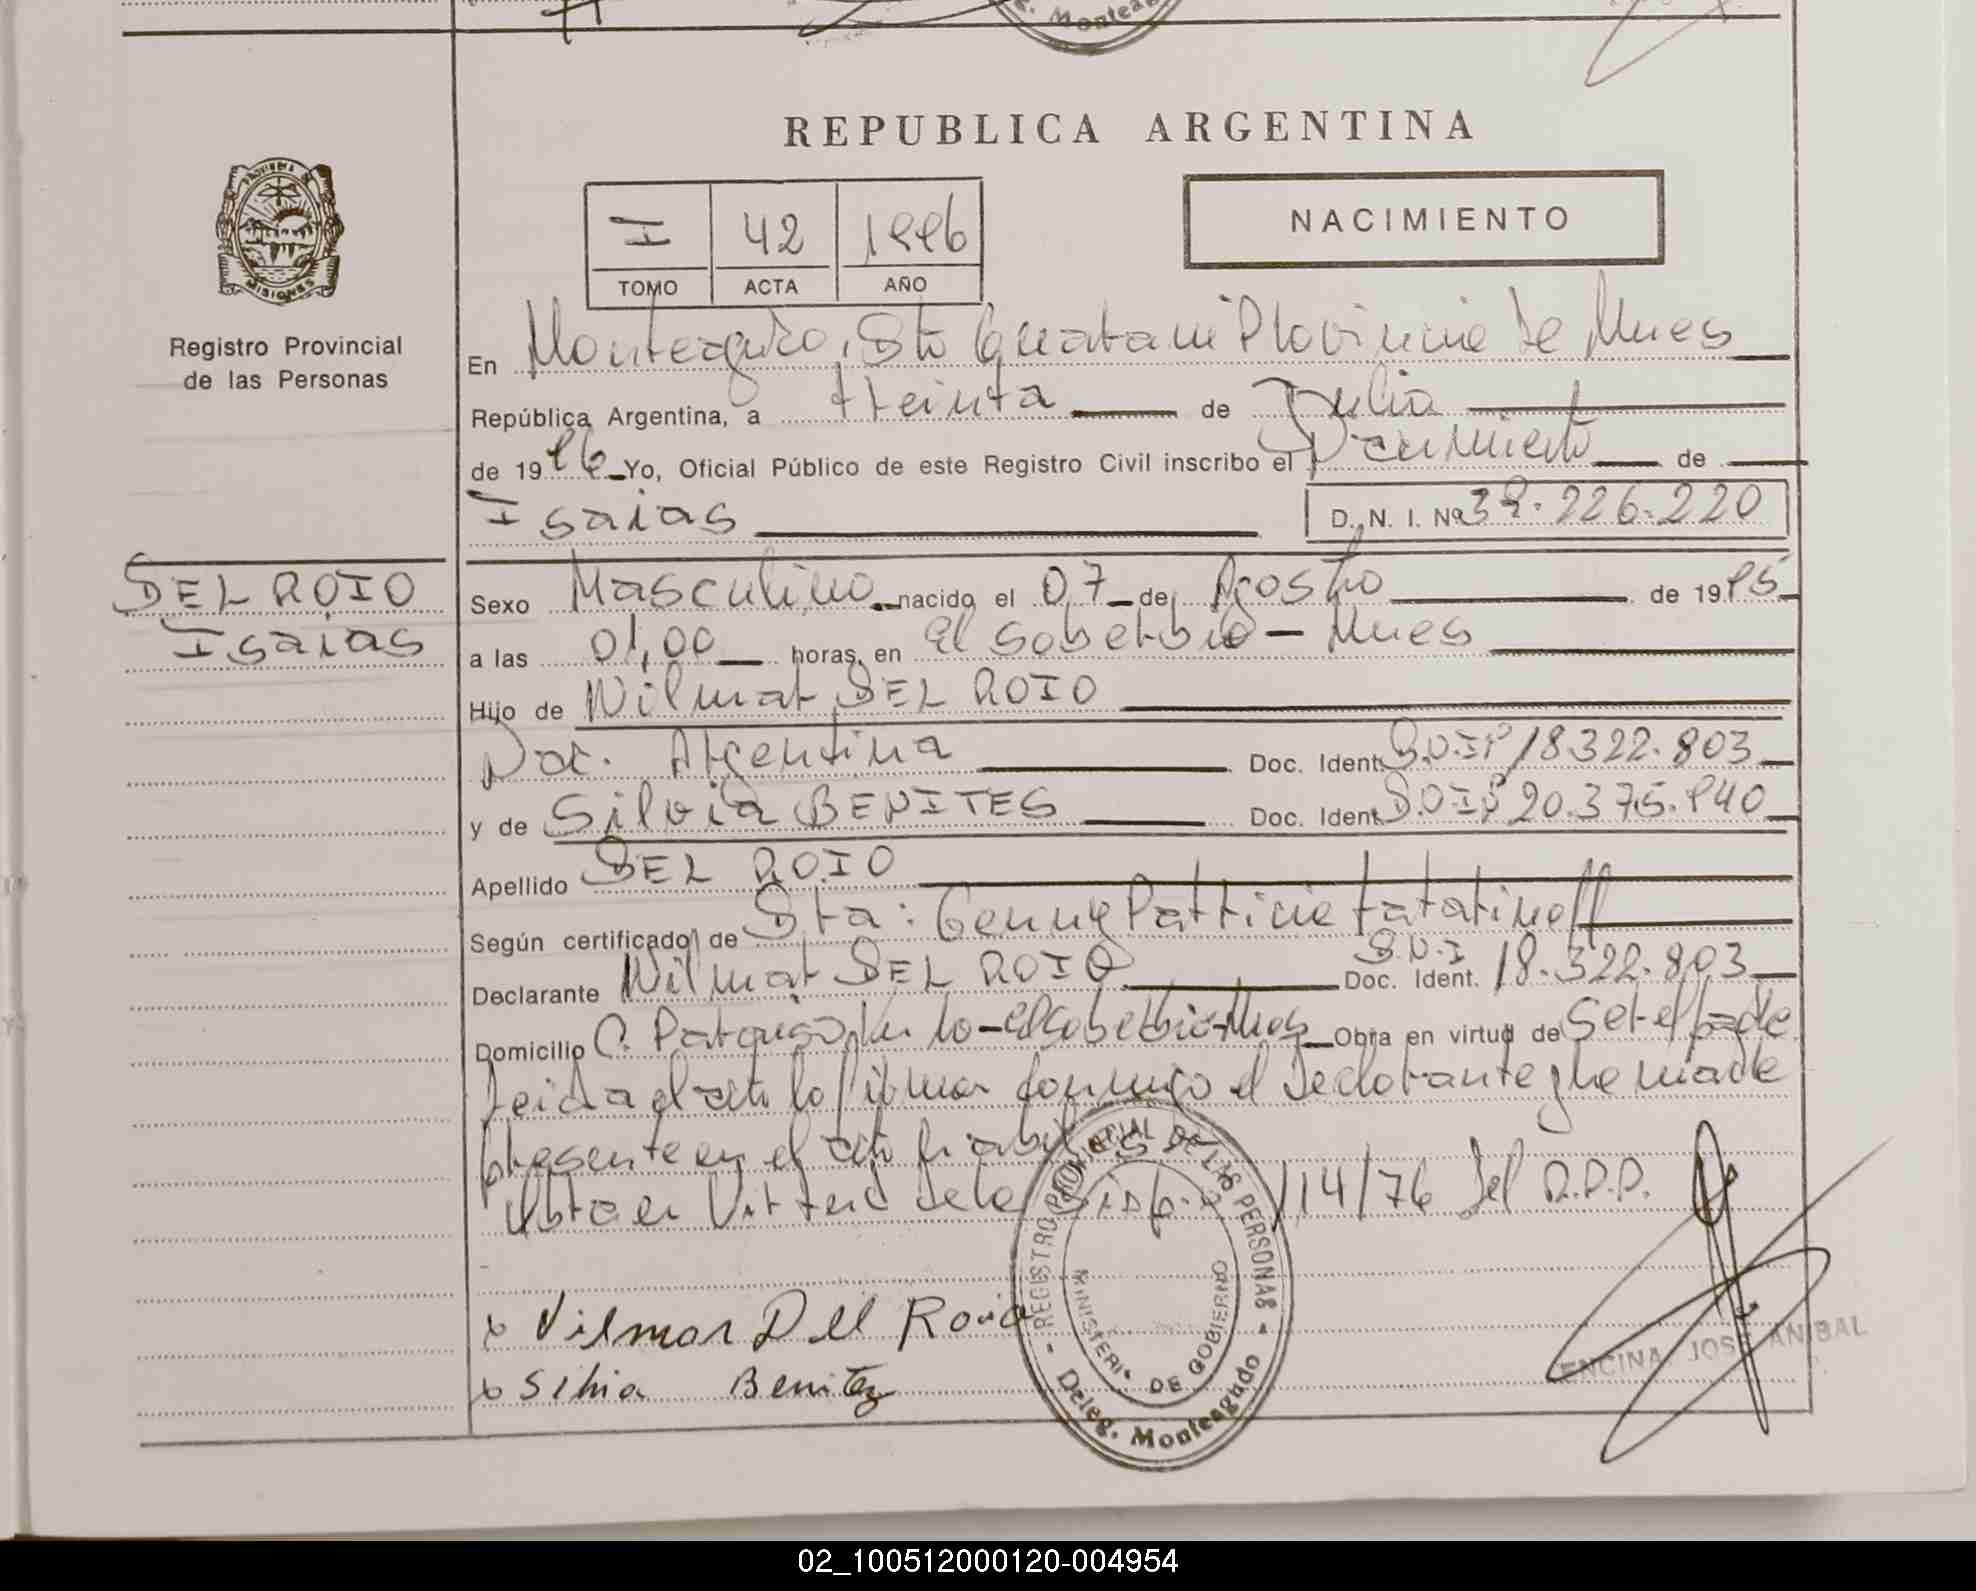 g. Monteag
REPUBLICA ARGENTINA
PROVINCIA DE MISIONES
Registro Provincial
de las Personas
I 42 1996
TOMO ACTA AÑO
NACIMIENTO
En Monteagudo, Gto Guarani Provincia de Mnes
República Argentina, a treinta de Julio
de 1996 Yo, Oficial Público de este Registro Civil inscribo el Nacimiento de
Isaias D. N. I. Nº 39.226.220
DEL ROIO
Isaias
Sexo Masculino nacido el 07 de Agosto de 1995
a las 01,00 horas, en El Soberbio - Mnes
Hijo de Wilmar DEL ROIO
Nac. Argentina Doc. Ident. D.N.I.Nº 18.322.803
y de Silvia BENITES Doc. Ident. D.N.I.Nº 20.375.940
Apellido DEL ROIO
Según certificado de Sta: Genny Patricia Tatarinoff
Declarante Wilmar DEL ROIO D.N.I Doc. Ident. 18.322.803
Domicilio C. Paraiso, Km 10 - El Soberbio - Mnes Obra en virtud de Ser el padre
leida el acta la firma conmigo el declarante y la madre
presente en el acto
en Virtud de la Disp. 114/76 del R.P.P.
x Vilmar Dell Roio
x Silvia Benitez
REGISTRO PROVINCIAL DE LAS PERSONAS
MINISTERIO DE GOBIERNO
Deleg. Monteagudo
ENCINA JOSE ANIBAL
02_100512000120-004954